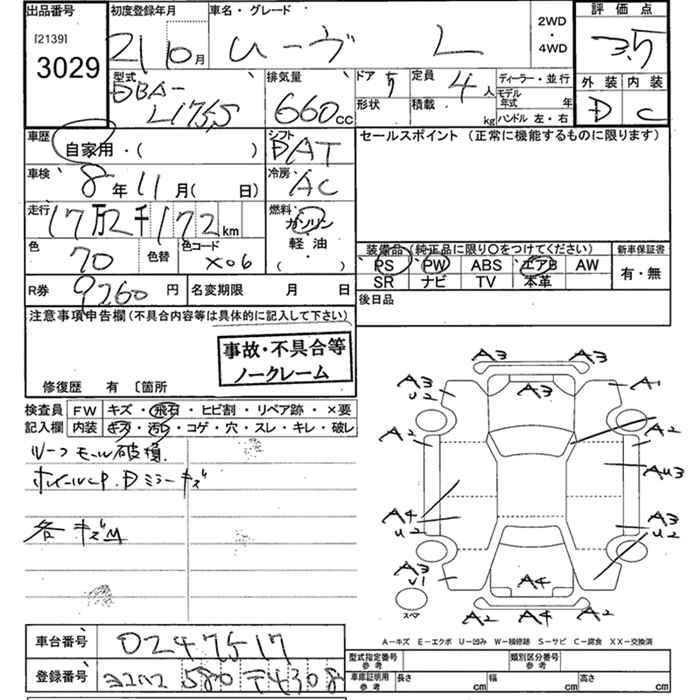 出品番号
[2139]
3029
初度登録年月
21 10月
車名・グレード
ムーヴ L
2WD
・
4WD
評価点
3.5
外装 内装
D C
型式
DBA-
L175S
排気量
660cc
ドア 5
定員 4人
形状
積載 kg
ディーラー・並行
モデル年式 年
ハンドル 左・右
車歴
自家用・( )
シフト
DAT
セールスポイント (正常に機能するものに限ります)
車検
8年11月( 日)
冷房
AC
走行
17万2千172km
燃料
ガソリン
・
軽油
・
( )
色
色替
色コード
X06
装備品(純正品に限り〇をつけてください)
新車保証書
PS PW ABS エアB AW
SR ナビ TV 本革
有・無
R券 9260円
名変期限 月 日
後日品
注意事項申告欄(不具合内容等は具体的に記入して下さい)
事故・不具合等
ノークレーム
修復歴 有 〔箇所
検査員
記入欄
FW キズ・飛石・ヒビ割・リペア跡・×要
内装 キズ・汚レ・コゲ・穴・スレ・キレ・破レ
ルーフモール破損
ホイールCP.Dミラーキズ
各キズM
A3 A3
A3
A3
U2
A1
A2 A2
AU3
A4
U2
A3
U2
A3
U1
A4
A2
A2 A4 A2
スペア
A－キズ E－エクボ U－凹み W－補修跡 S－サビ C－腐食 XX－交換済
車台番号 0247517
登録番号 580 4308
型式指定番号
参考
類別区分番号
参考
車庫証明用
参考
長さ cm
幅 cm
高さ cm